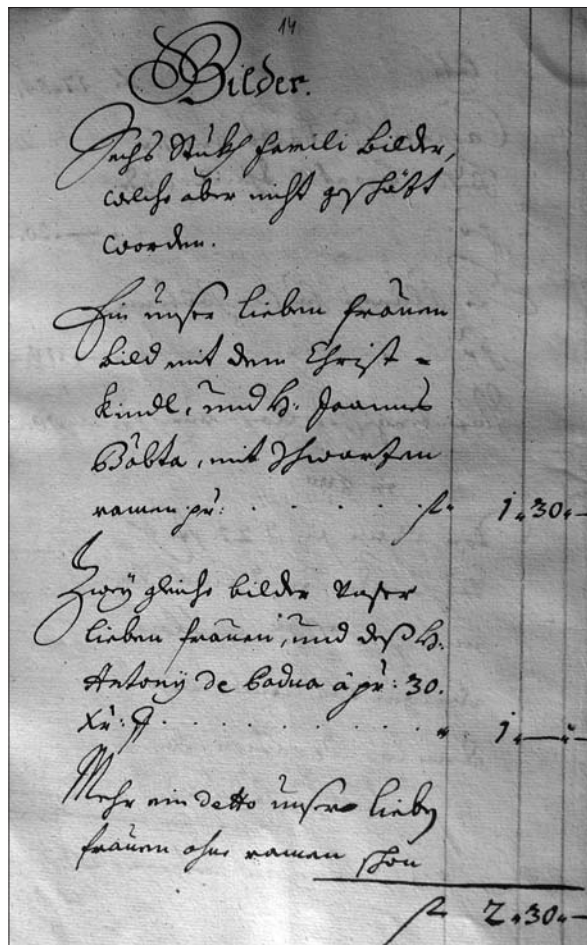 14
Bilder.
Sechs Stukh famili bilder,
welche aber nicht geschätzt
worden.
Ein unser lieben frauen
bild mit dem Christ =
kindl, und H: Joannes
mit schwartzen
ramen pr: . . . . . . f. 1. 30. —
Zwey gleiche bilder unser
lieben frauen, und deß H:
Antony de badua à pr: 30.
Xr: . . . . . . . . . " 1. — " —
Mehr ein detto unser lieben
frauen ohne ramen schon
f 2. 30. —